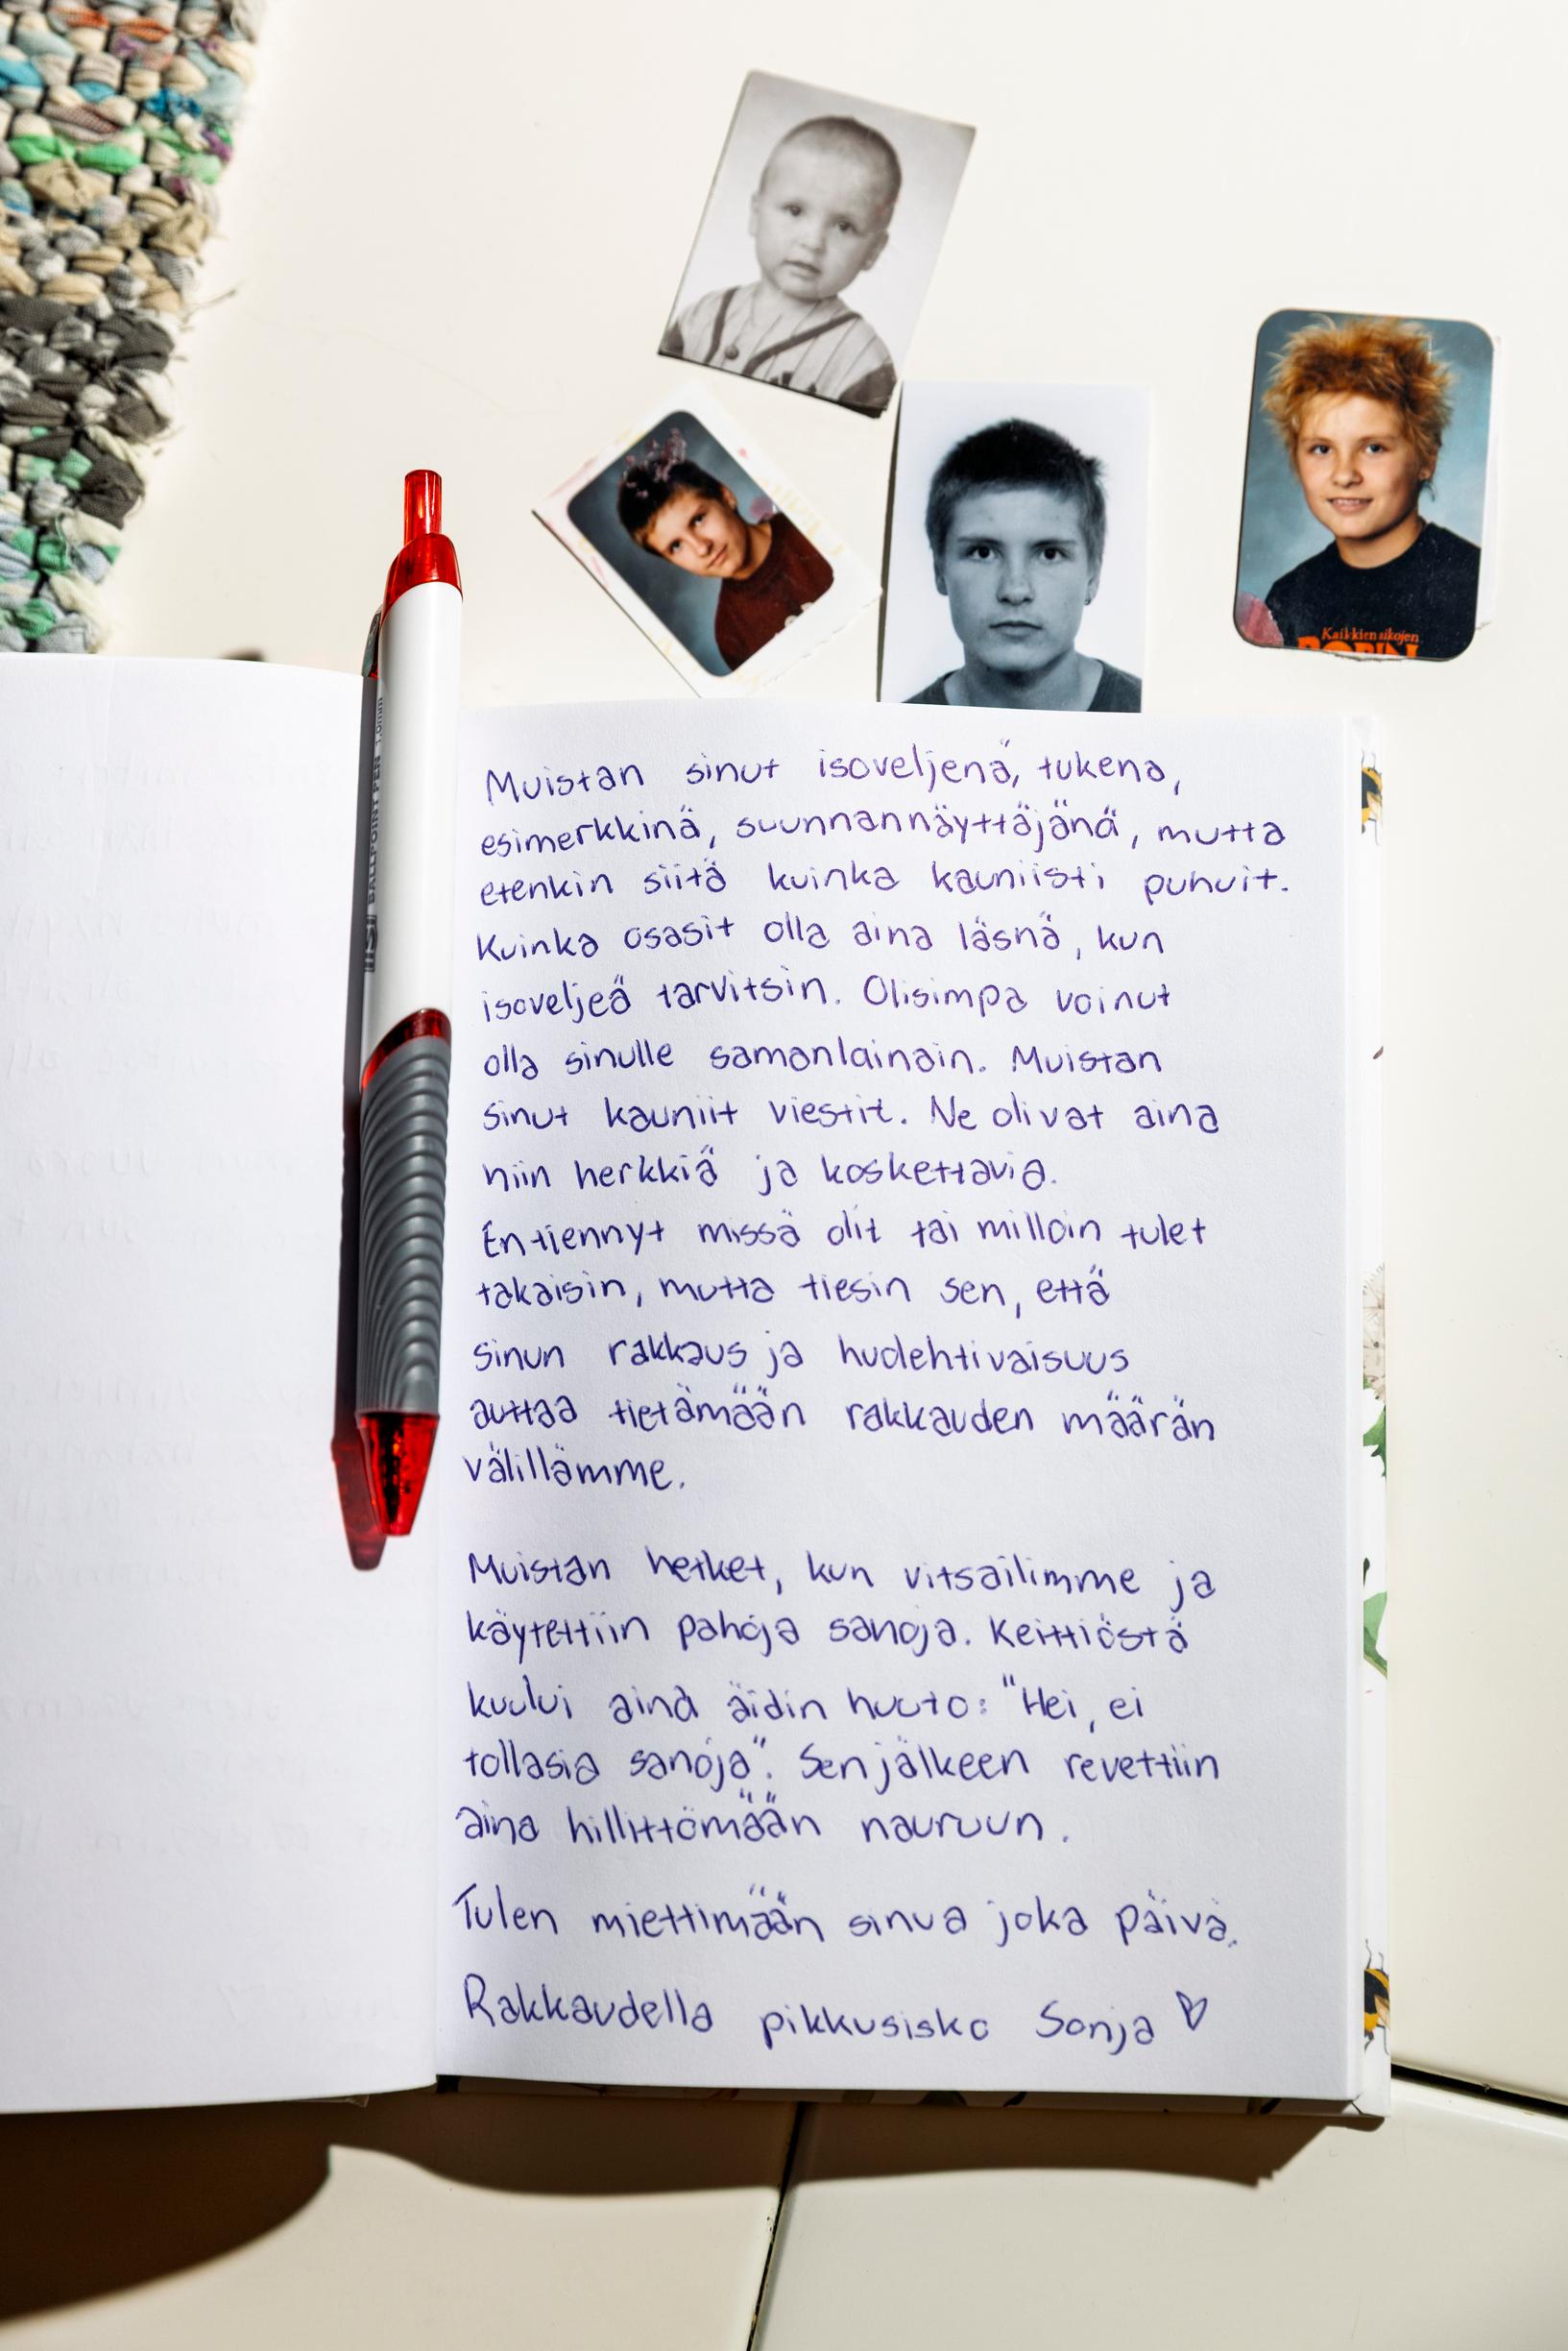 Kaikkien aikojen
ROBIN
BALLPOINT PEN 1.0mm
Muistan sinut isoveljenä, tukena,
esimerkkinä, suunnannäyttäjänä, mutta
etenkin siitä kuinka kauniisti puhuit.
Kuinka osasit olla aina läsnä, kun
isoveljeä tarvitsin. Olisimpa voinut
olla sinulle samanlainain. Muistan
sinut kauniit viestit. Ne olivat aina
niin herkkiä ja koskettavia.
En tiennyt missä olit tai milloin tulet
takaisin, mutta tiesin sen, että
sinun rakkaus ja huolehtivaisuus
auttaa tietämään rakkauden määrän
välillämme.
Muistan hetket, kun vitsailimme ja
käytettiin pahoja sanoja. Keittiöstä
kuului aina äidin huuto: "Hei, ei
tollasia sanoja". Sen jälkeen revettiin
aina hillittömään nauruun.
Tulen miettimään sinua joka päivä.
Rakkaudella pikkusisko Sonja